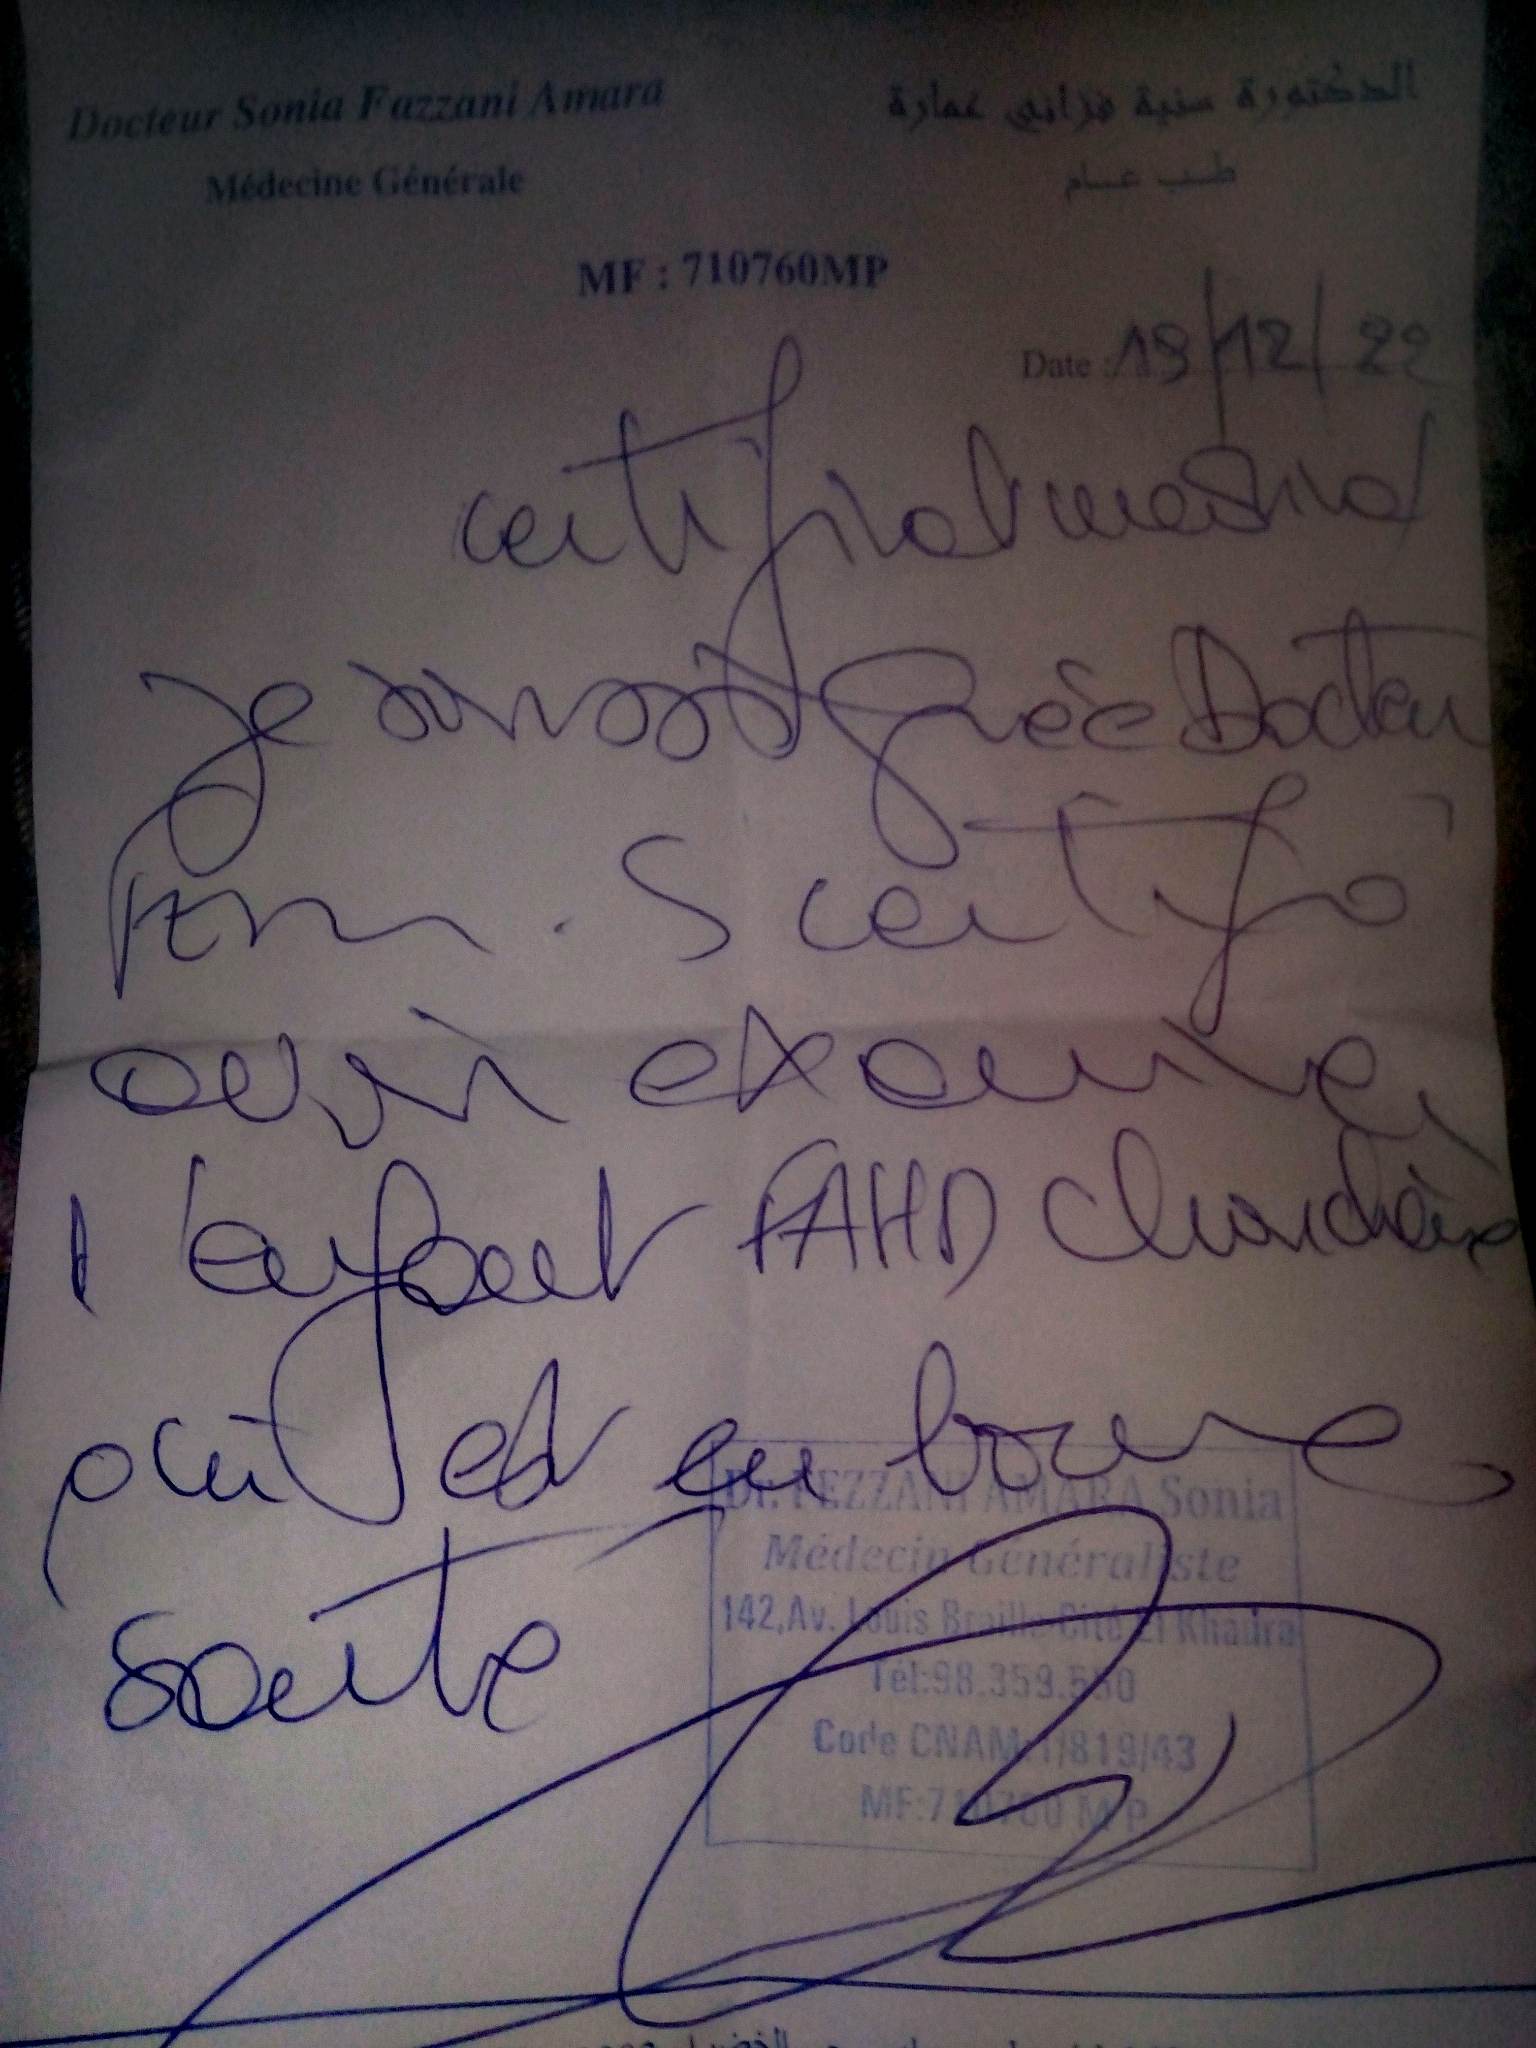 Docteur Sonia Fazzani Amara
الدكتورة سنية فزاني عمارة
Médecine Générale
طب عام
MF : 710760MP
Date : 19/12/22
certificat medical
Je soussignée Docteur
S certifie
avoir examiné
l'enfant FAHD
qui est en bonne
santé
Dr. FEZZANI AMARA Sonia
Médecin Généraliste
142,Av. Louis Braille Cité El Khadra
Tél:98.359.550
Code CNAM:1/819/43
MF:710760 M P